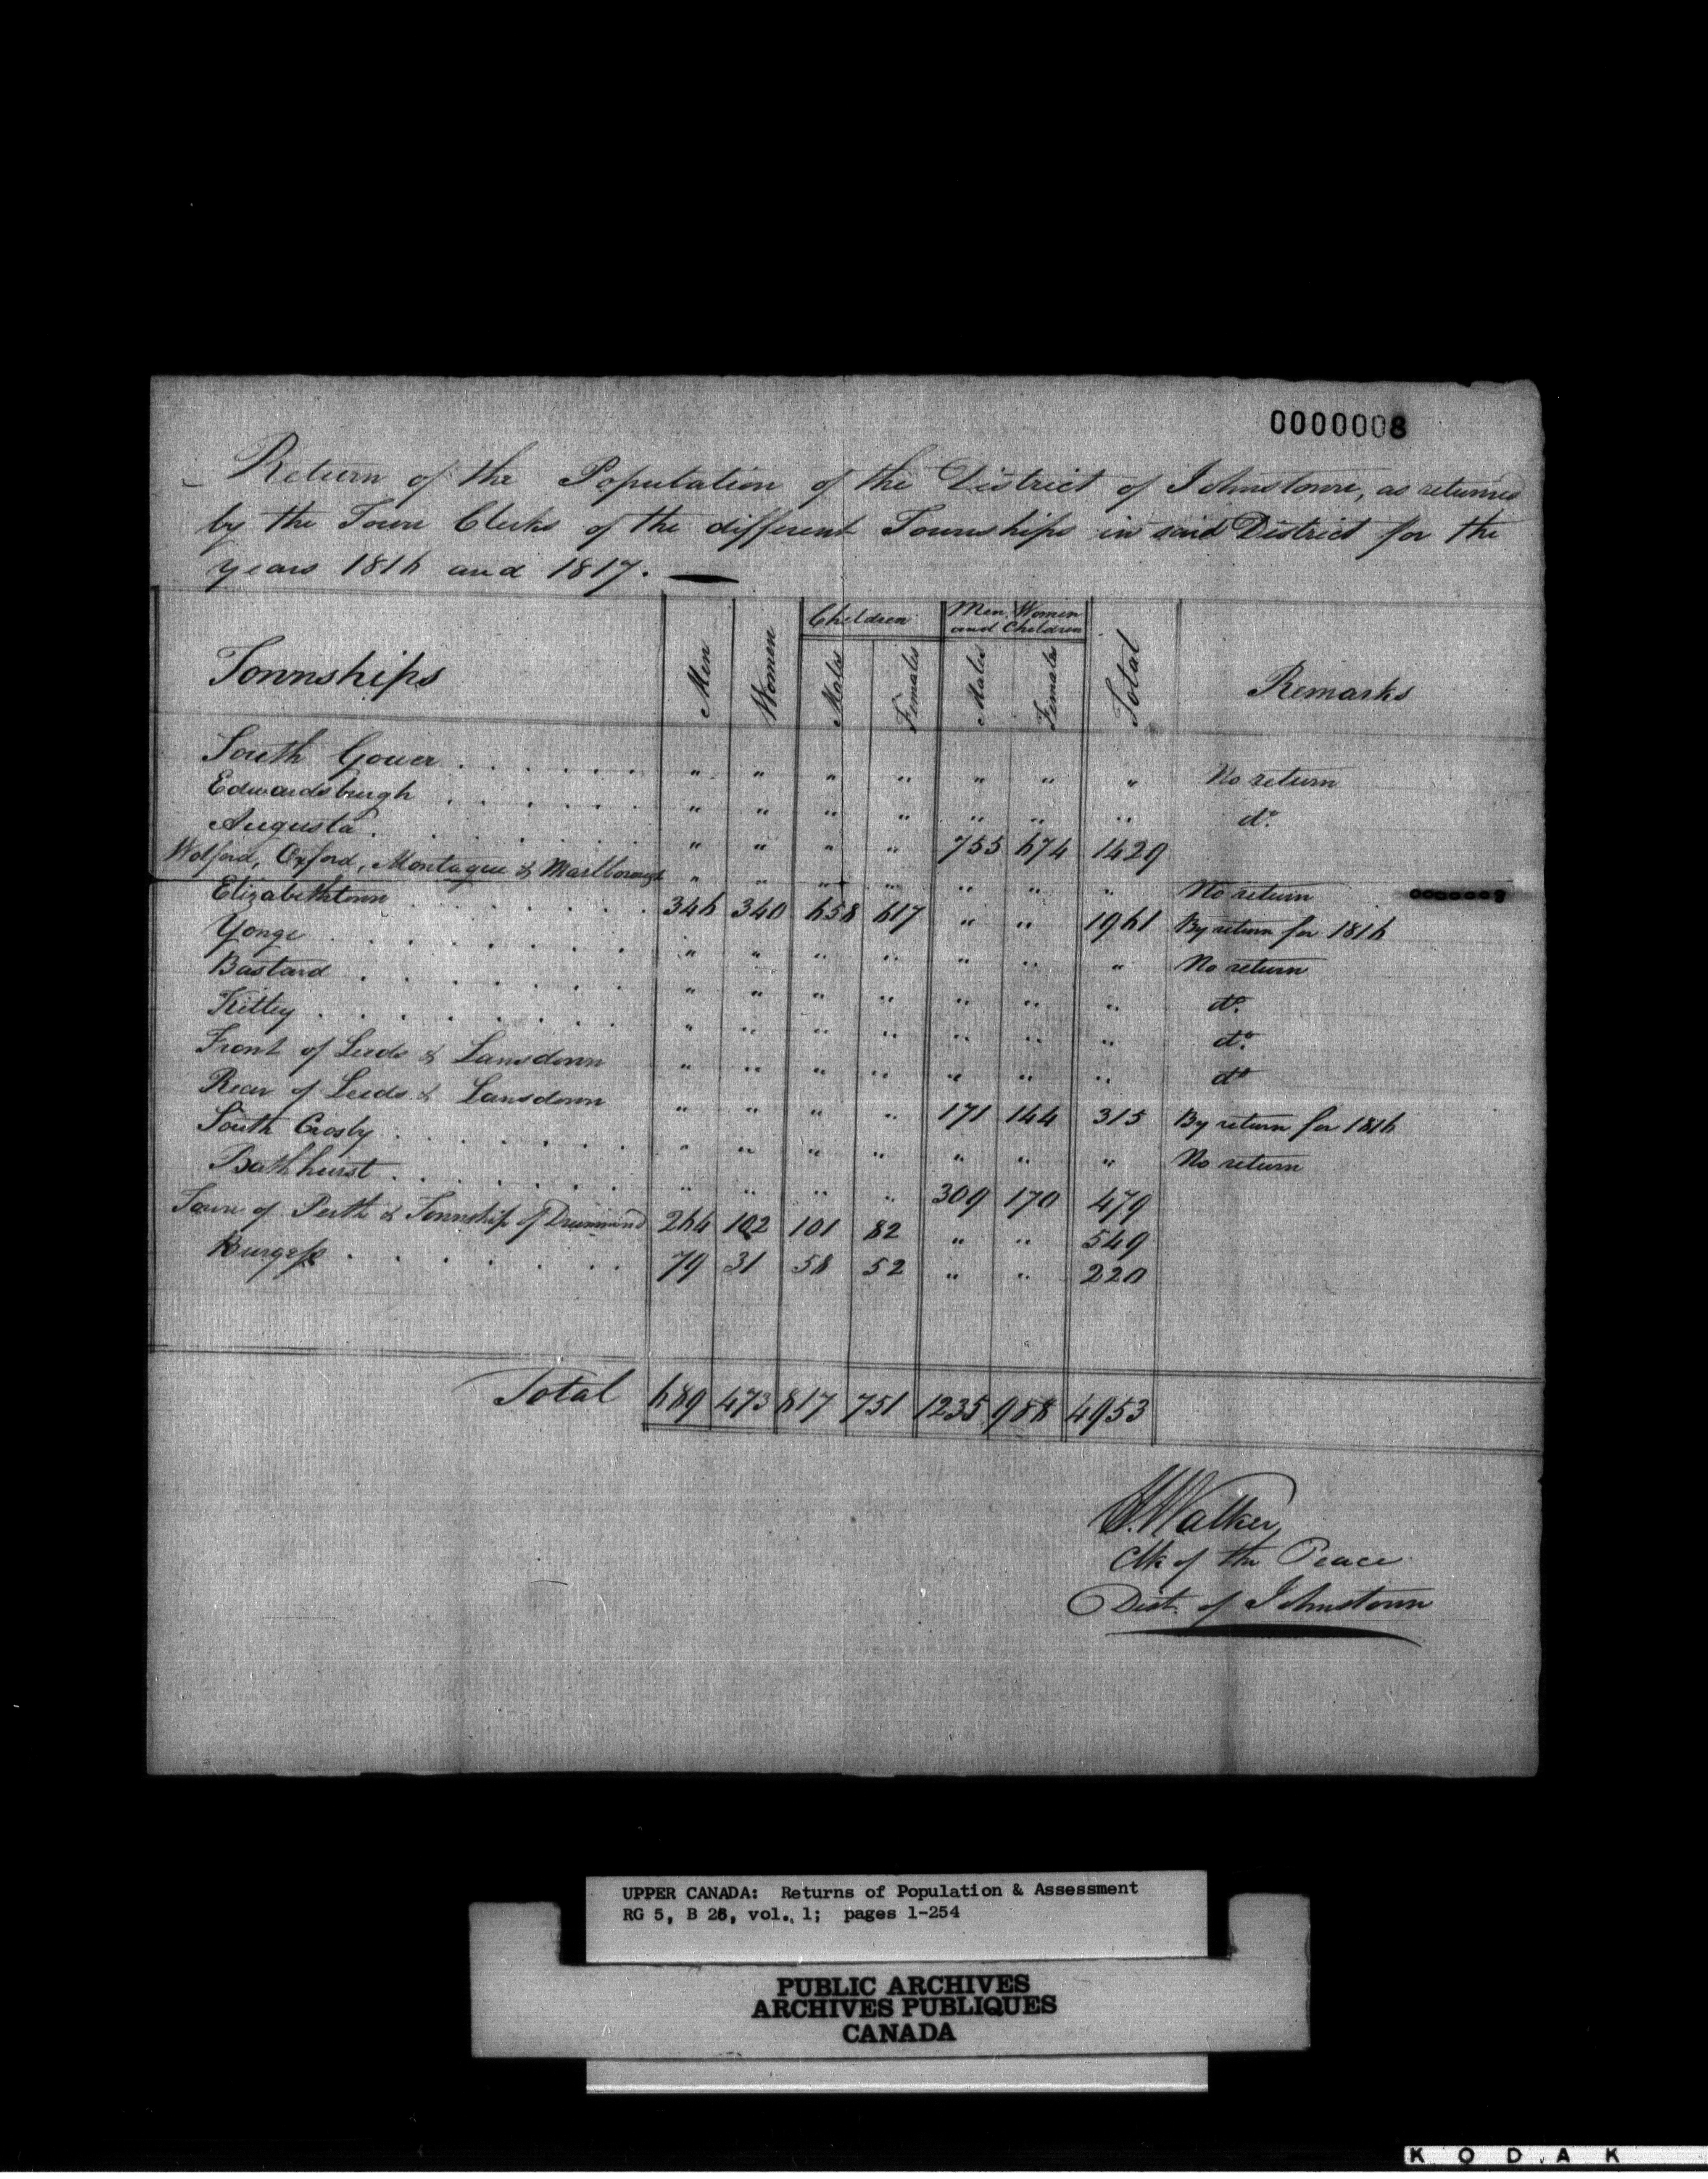 0000008
Return of the Population of the District of Johnstown, as returned
by the Town Clerks of the different Townships in said District for the
years 1816 and 1817. —
Townships | Men | Women | Children | Men, Women and Children | Total | Remarks
Males | Females | Males | Females
South Gower . . . . . . " " " " " " " No return
Edwardsburgh . . . . . . " " " " " " " do.
Augusta . . . . . . " " " " 755 674 1429
Wolford, Oxford, Montague & Marlborough " " " " " " " No return
0000008
Elizabethtown . . . . . . 346 340 658 617 " " 1961 By return for 1816
Yonge . . . . . . " " " " " " " No return
Bastard . . . . . . " " " " " " " do.
Kitley . . . . . . " " " " " " " do.
Front of Leeds & Lansdown " " " " " " " do
Rear of Leeds & Lansdown " " " " 171 144 315 By return for 1816
South Crosby . . . . . . " " " " " " " No return
Bathhurst . . . . . . " " " " 309 170 479
Town of Perth & Township of Drummond 264 102 101 82 " " 549
Burgess . . . . . . 79 31 58 52 " " 220
Total 689 473 817 751 1235 988 4953
Walker,
Clk of the Peace
Dist. of Johnstown
UPPER CANADA: Returns of Population & Assessment
RG 5, B 26, vol. 1; pages 1-254
PUBLIC ARCHIVES
ARCHIVES PUBLIQUES
CANADA
KODAK